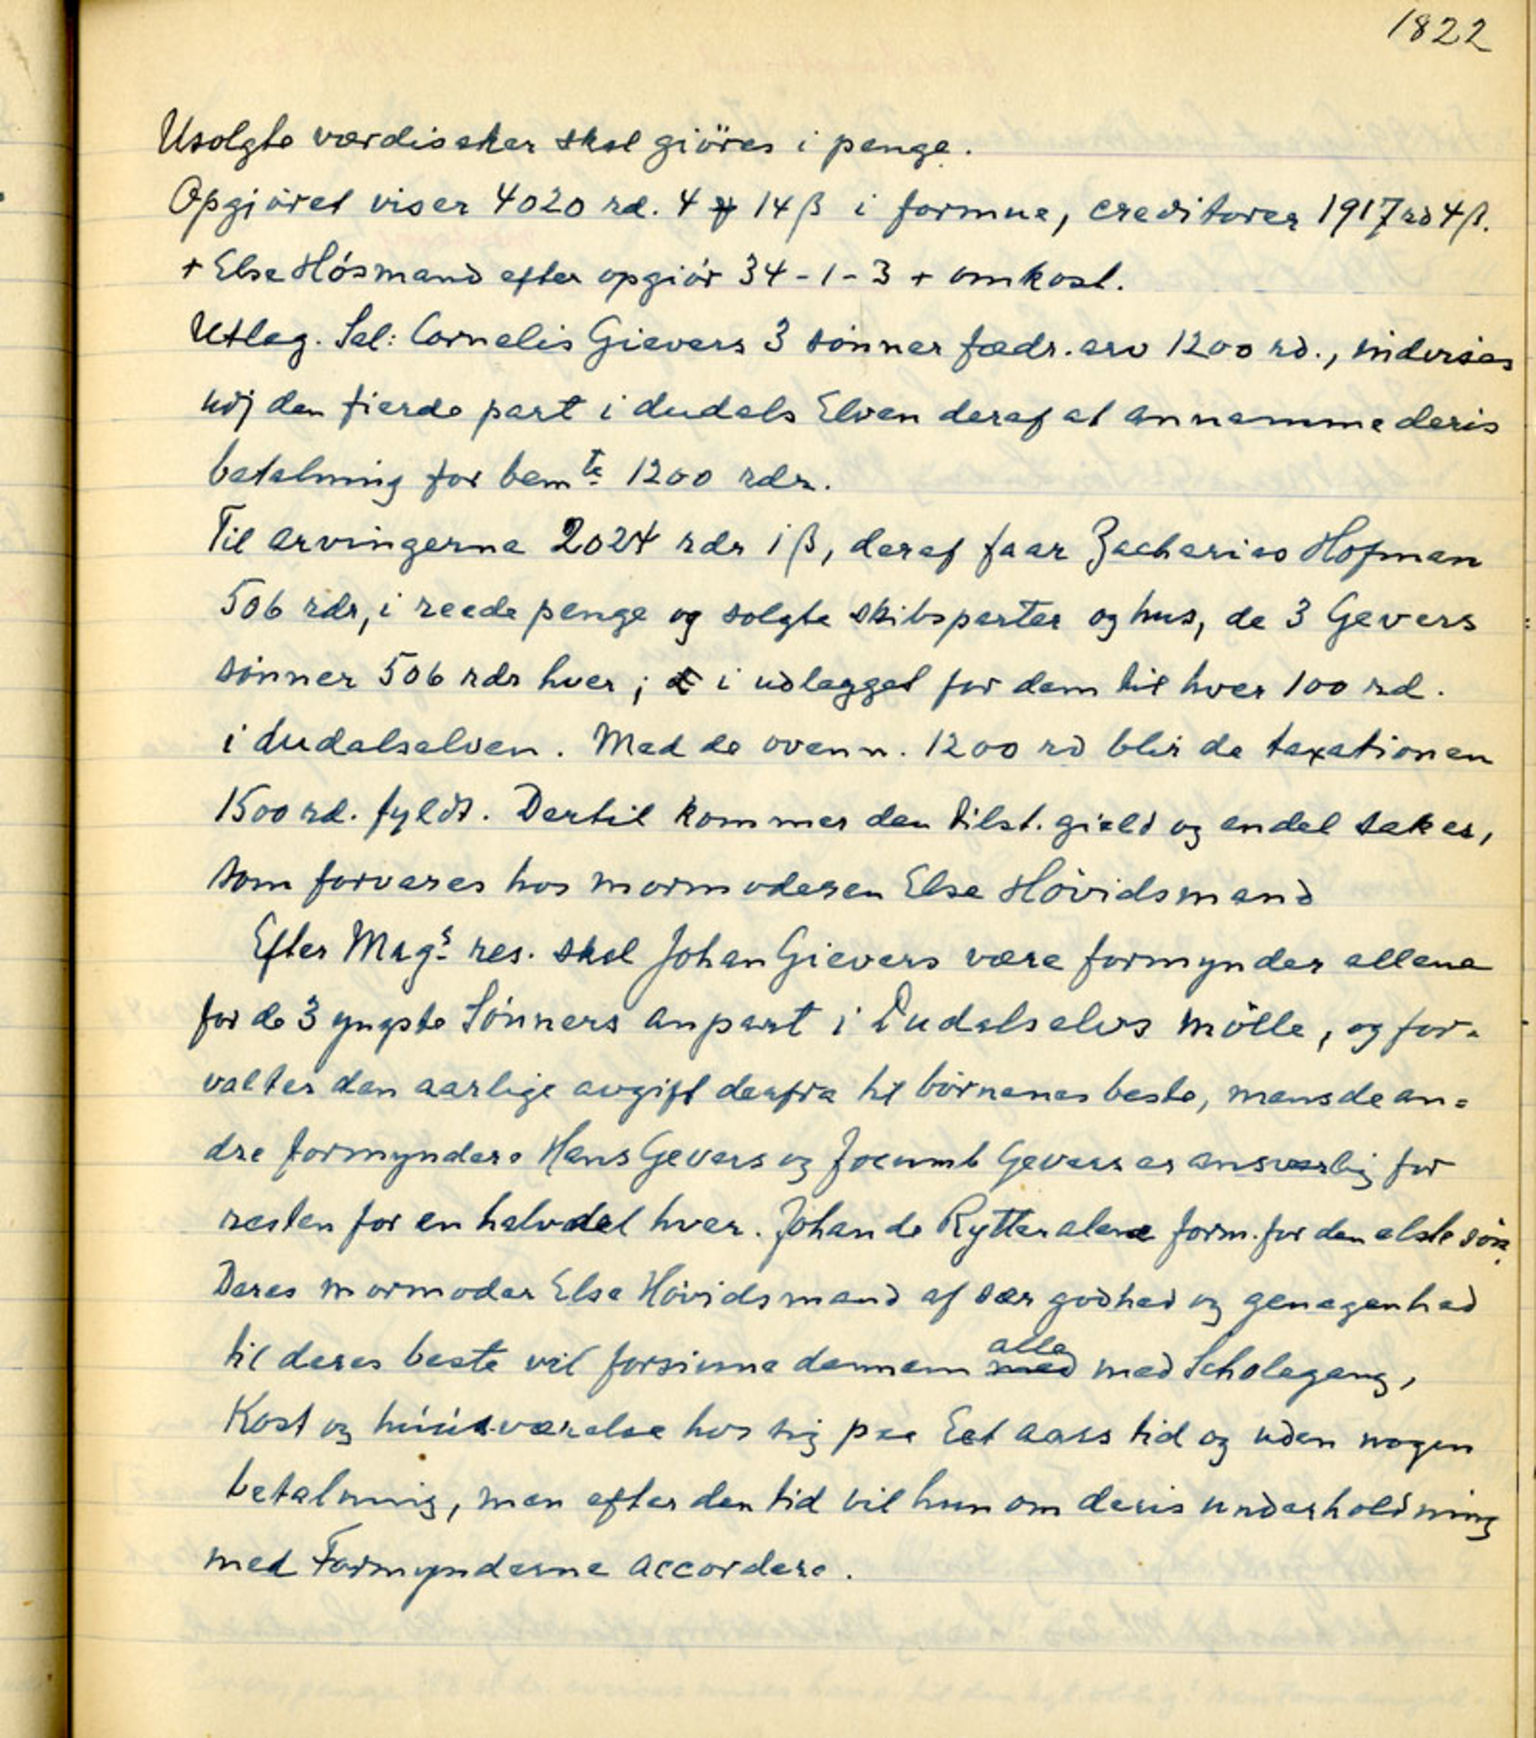 1822
Usolgte værdisaker skal giöres i penge.
Opgjöret viser 4020 rd. 4 ₰ 14 β i formue, creditorer 1917 rd 4 β.
+ Else Hósmand efter opgiör 34-1-3 + omkost.
Utlag. Sal: Cornelis Gievers 3 sönner fædr. arv 1200 rd., indvises
udj den fierde part i dudals Elven deraf at annamme deris
betalning for bem te. 1200 rdr.
Til arvingerne 2024 rdr 1 β, deraf faar Zacharias Hofman
506 rdr, i reede penge og solgte skibsparter og hus, de 3 Gevers
sönner 506 rdr hver; i udlægget for dem til hver 100 rd.
i dudalselven. Med de ovenn. 1200 rd blir de taxationen
1500 rd. fyldt. Dertil kommer den tilst. gield og endel saker,
som forvares hos mormoderen Else Hóvidsmand
Efter Mag s. res. skal Johan Gievers være formynder allene
for de 3 yngste Sönners anpart i Dudalselvs mölle, og for=
valter den aarlige avgift derfra til börnenes beste, mens de an=
dre formyndere Hans Gevers og Jocumb Gevers er ansvarlig for
resten for en halvdel hver. Johan de Rytter alene form. for den elste sön.
Deres mormoder Else Hóvidsmand af sær godhed og genegenhed
til deres beste vil forsiune dennem alle med Scholegang,
Kost og húusværelse hos sig paa Eet aars tid og uden nogen
betalning, men efter den tid vil hun om deris underholdning
med Formynderne accordere.